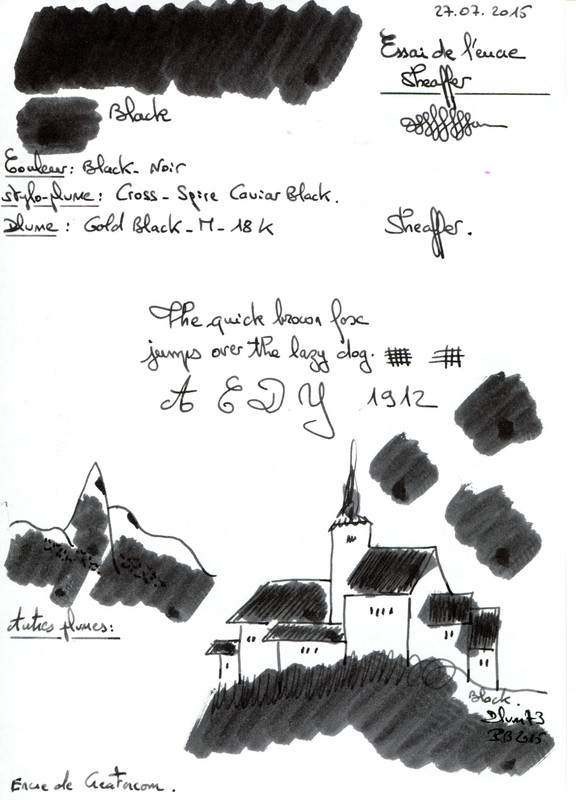 27.07.2015
Essai de l'encre
Sheaffer
Black
Couleur: Black - Noir
Stylo-plume: Cross - Spire Caviar Black.
Plume: Gold Black - M - 18 K
Sheaffer.
The quick brown fox
jumps over the lazy dog.
A E D Y 1912
Autres plumes:
Black.
Plum73
Encre de Creatorcom.